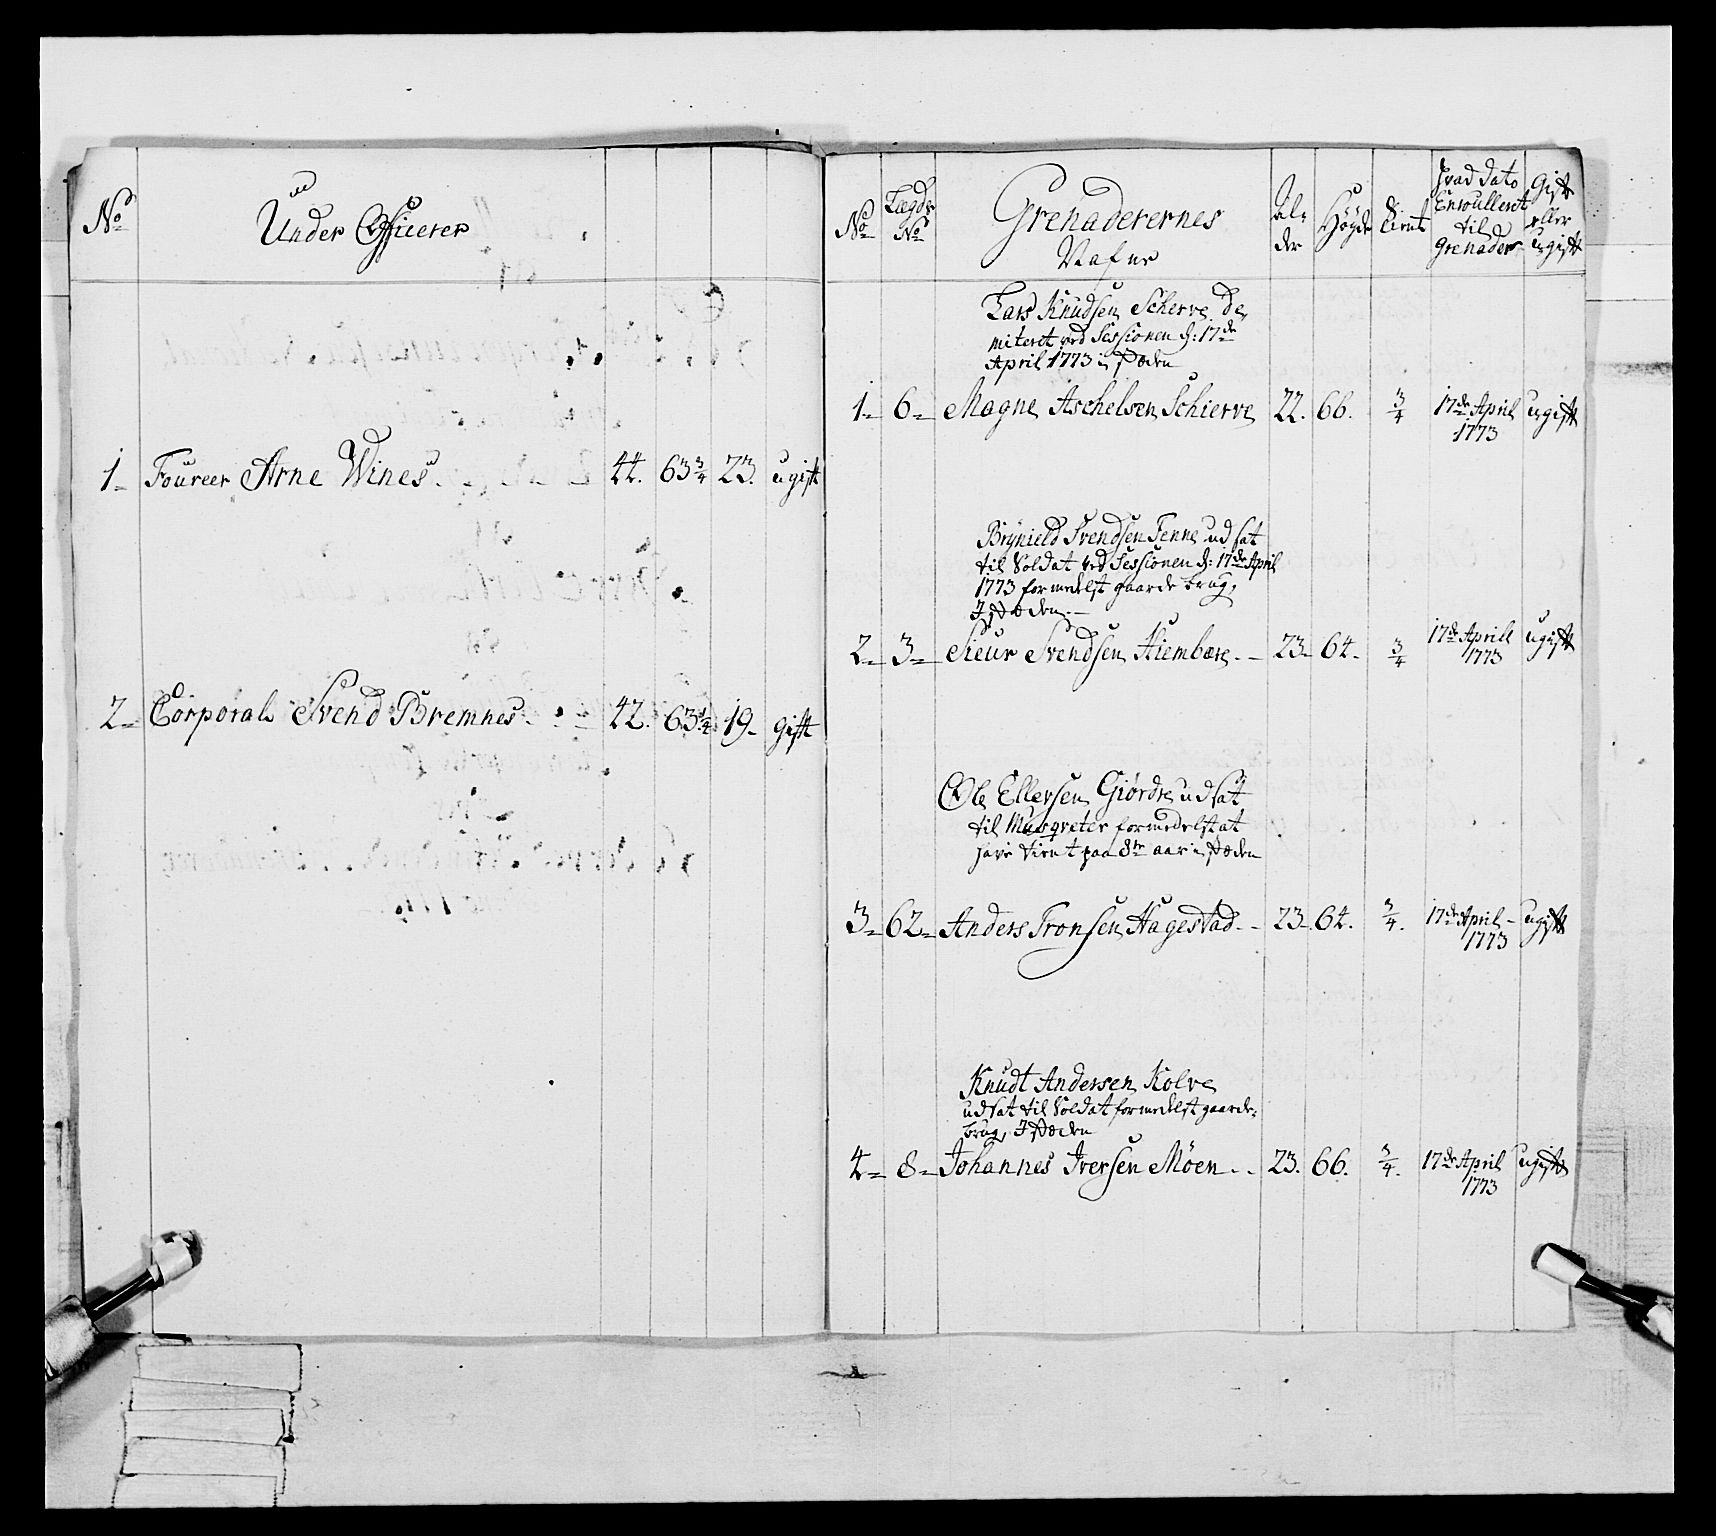 No
Under Officerer
1 Foureer Arne Wines. 44. 63 3/4 23. ugift
2 Corporal Svend Bremnes. 42. 63 1/4 19 gift
No
Lægds No
Grenaderernes
Nafne
Al-
der
Höyde
Tient
Hvad Dato
Enroulleret
til
Grenader
Gift
eller
ugift
Lars Knudsen Scherve De-
miteret ved Sessionen d: 17de
April 1773 i Steden
1 6 Magne Aschelsen Schierve 22. 66. 3/4 17de April ugift
1773
Brynield Svendsen Tenne udsat
til Soldat ved Sessionen d: 17de April
1773 formedelst gaarde brug,
I Steden
2 3 Sieur Svendsen Hiembære 23 64. 3/4 17de April ugift
1773
Ole Ellersen Giørdre udsat
til Musqveter formedelst at
have tient paa 8te aar i Steden
3 62 Anders Tronsen Hagestad 23 64. 3/4. 17de April ugift
1773
Knudt Andersen Kolve
udsat til Soldat formedelst gaarde-
brug, I Steden
4 8 Johannes Iversen Möen 23. 66. 3/4. 17de April ugift
1773